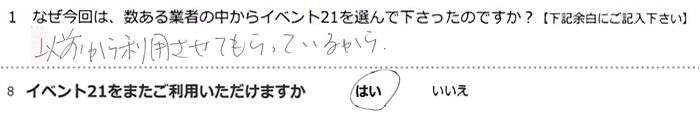 1 なぜ今回は、数ある業者の中からイベント21を選んで下さったのですか？【下記余白にご記入下さい】
以前から利用させてもらっているから.
8 イベント21をまたご利用いただけますか はい いいえ